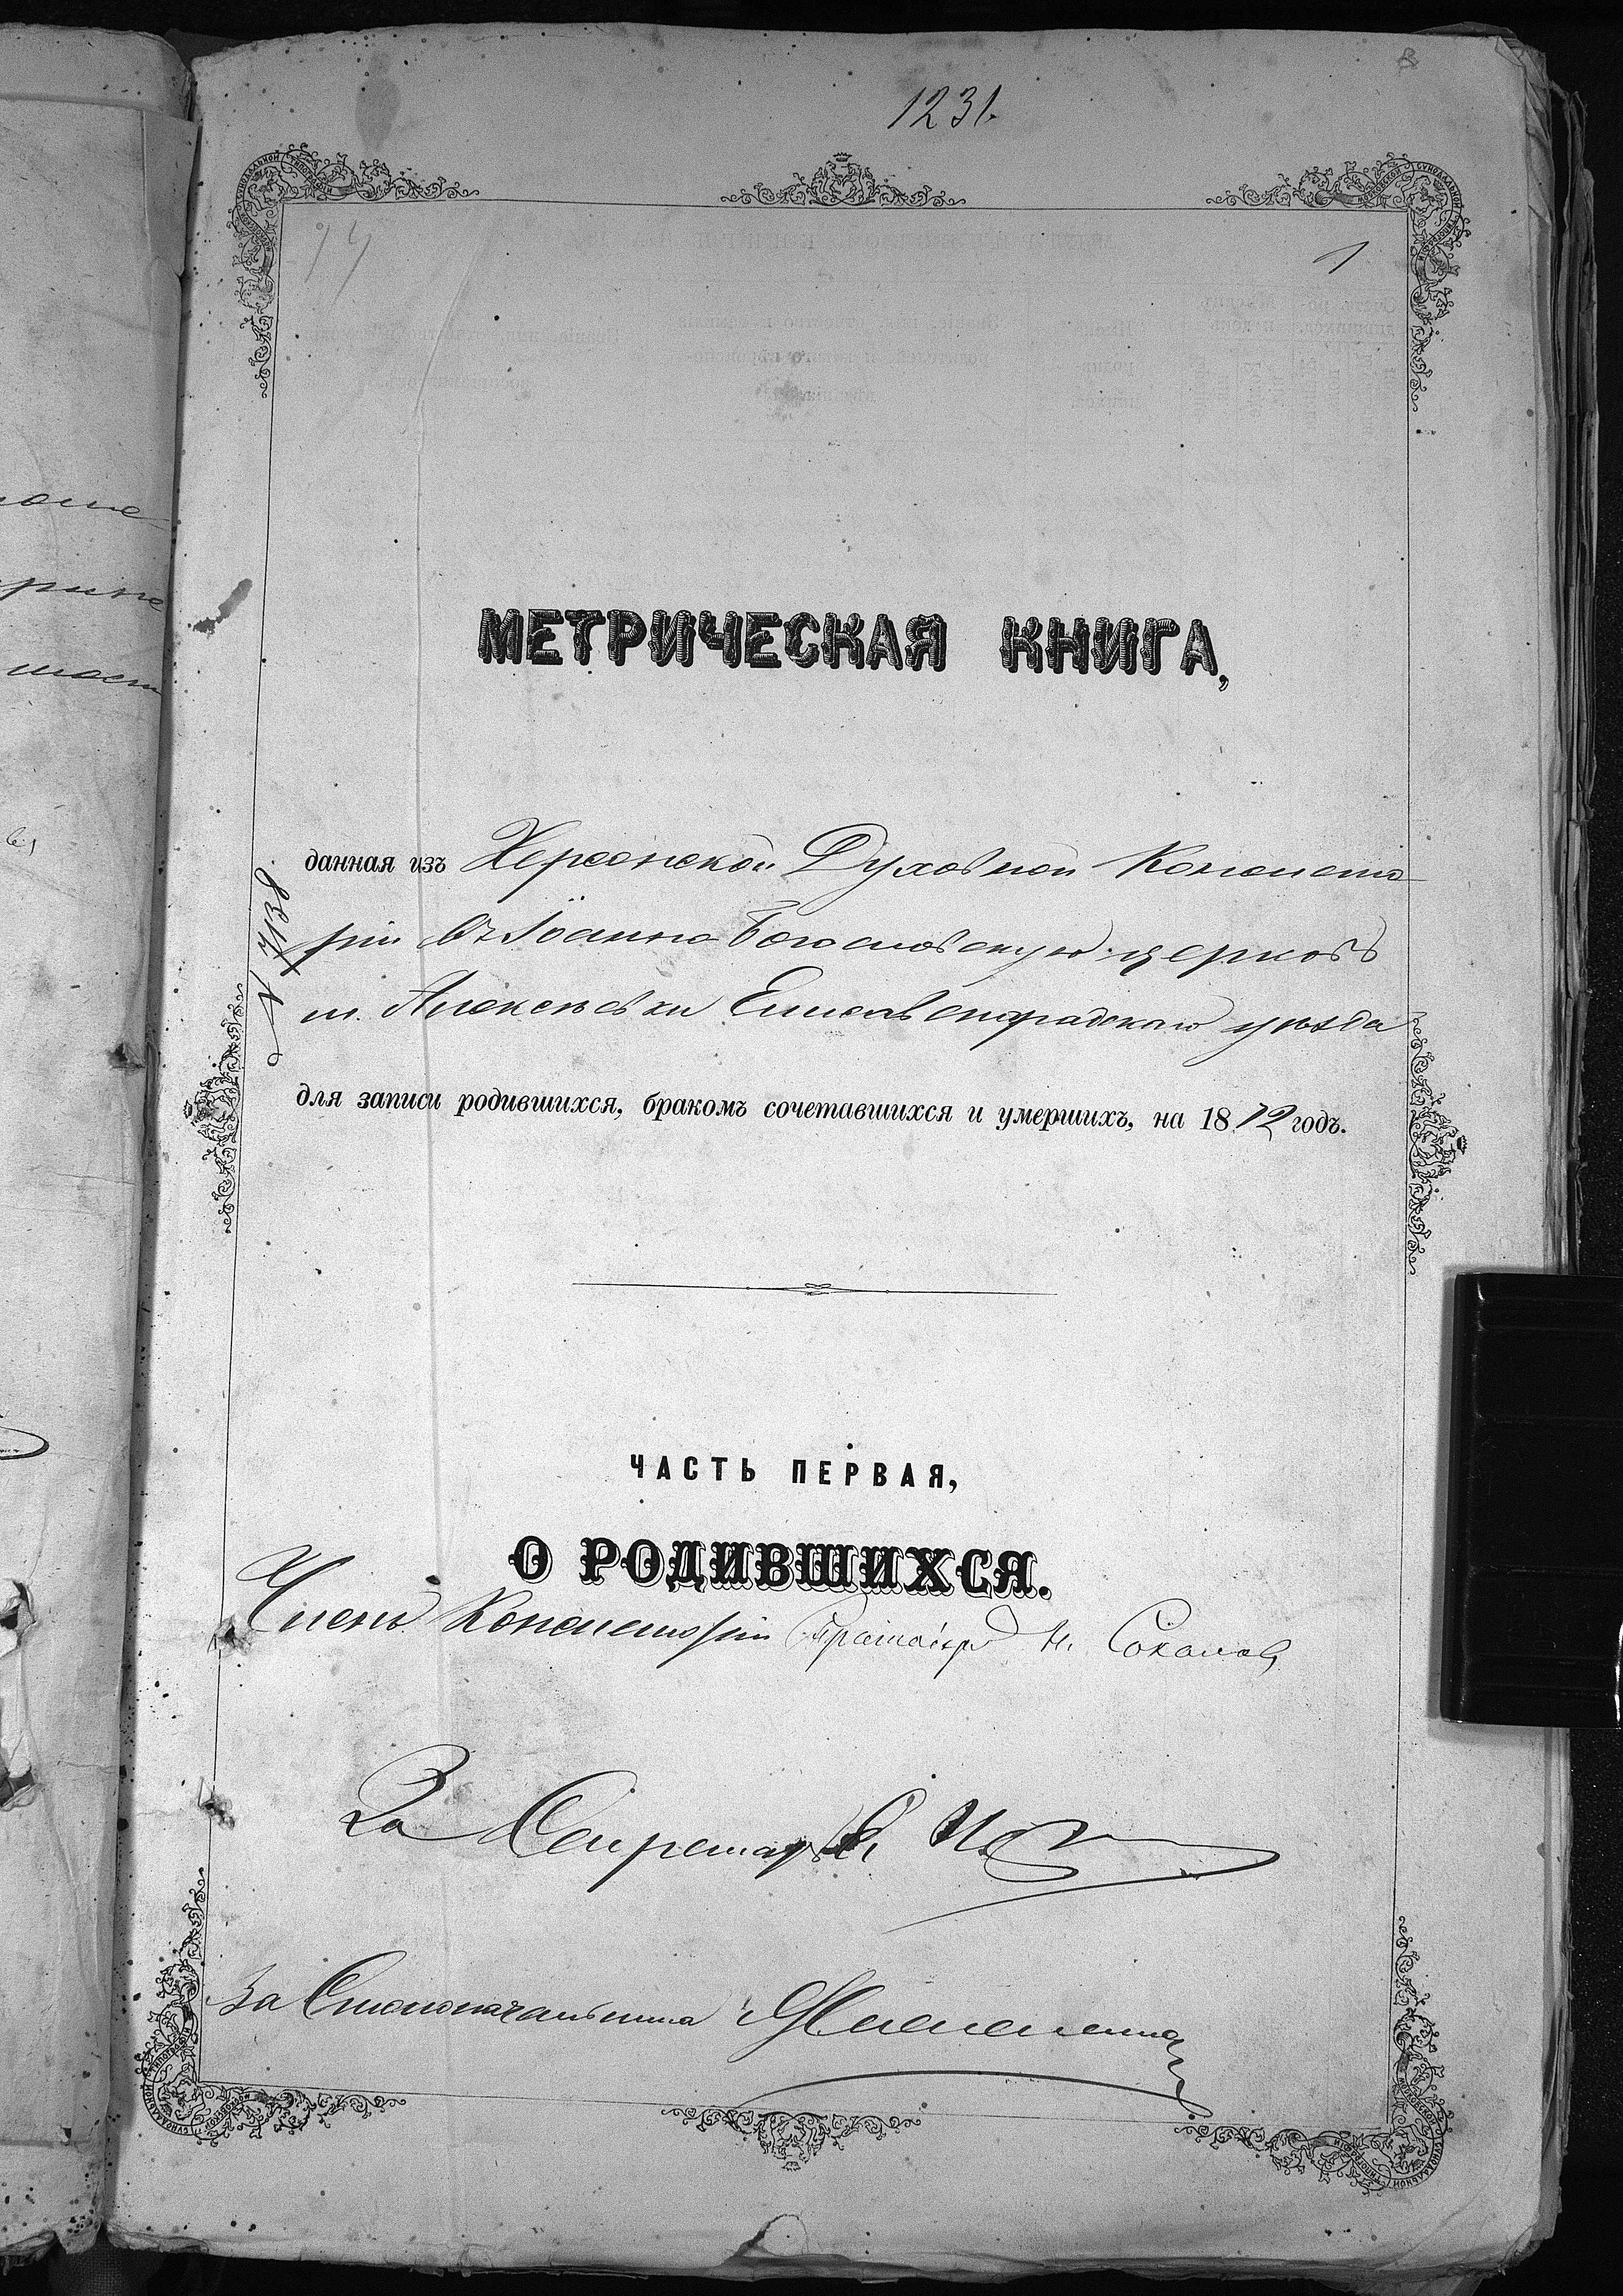 1231.
14
1
МЕТРИЧЕСКАЯ КНИГА,
данная изъ Херсонской Духовной Консисто-
ріи въ Іоанно-Богословскую церковь
м. Алексѣевки Елисаветградскаго уѣзда
№ 7138.
для записи родившихся, бракомъ сочетавшихся и умершихъ, на 1872 годъ.
ЧАСТЬ ПЕРВАЯ,
О РОДИВШИХСЯ.
Членъ Консисторіи Протоіерей Н. Соколовъ
За Секретаря
За Столоначальника